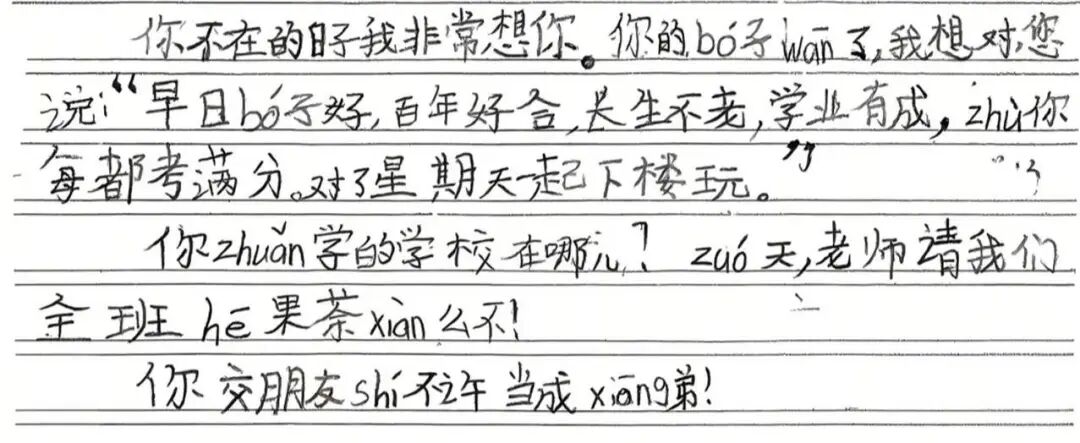 你不在的日子我非常想你。你的bó子wān了,我想对您
说:“早日bó子好,百年好合,长生不老,学业有成,zhù你
每都考满分。对了星期天一起下楼玩。”
你zhuǎn学的学校在哪儿? zuó天,老师请我们
全班hē果茶xiàn么不!
你交朋友shí不许当成xiāng弟!